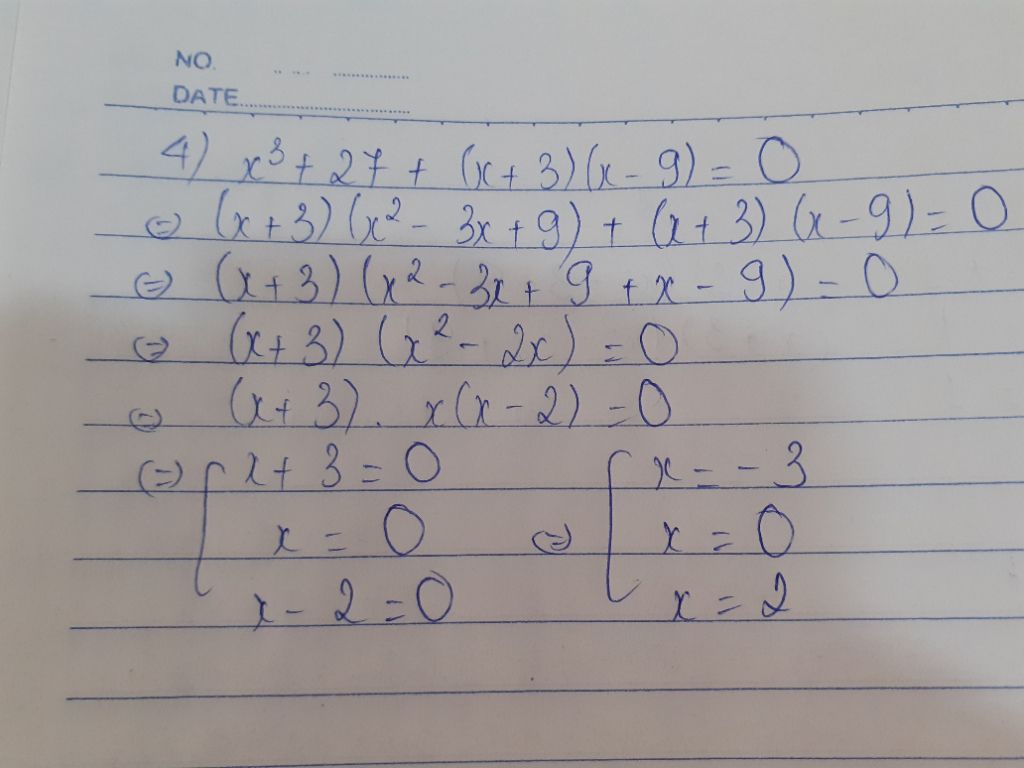 NO.
DATE
4) x³ + 27 + (x + 3)(x - 9) = 0
⇔ (x + 3)(x² - 3x + 9) + (x + 3)(x - 9) = 0
⇔ (x + 3)(x² - 3x + 9 + x - 9) = 0
⇔ (x + 3)(x² - 2x) = 0
⇔ (x + 3). x(x - 2) = 0
⇔ [ x + 3 = 0 [ x = -3
x = 0 ⇔ x = 0
x - 2 = 0 x = 2